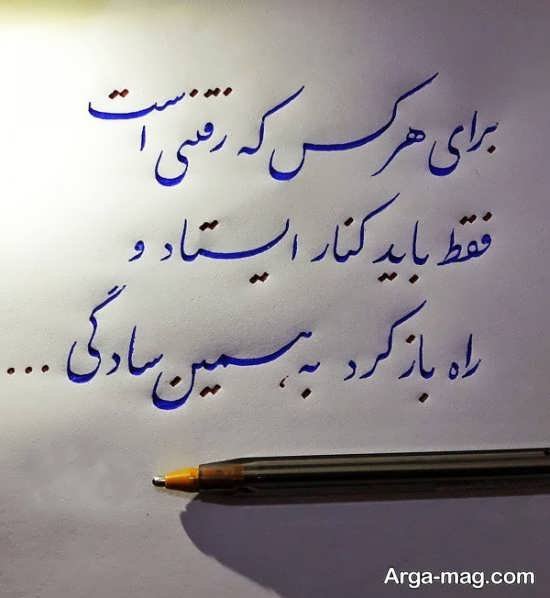 برای هر کس که رفتنی است
فقط باید کنار ایستاد و
راه باز کرد به همین سادگی ...
Arga-mag.com